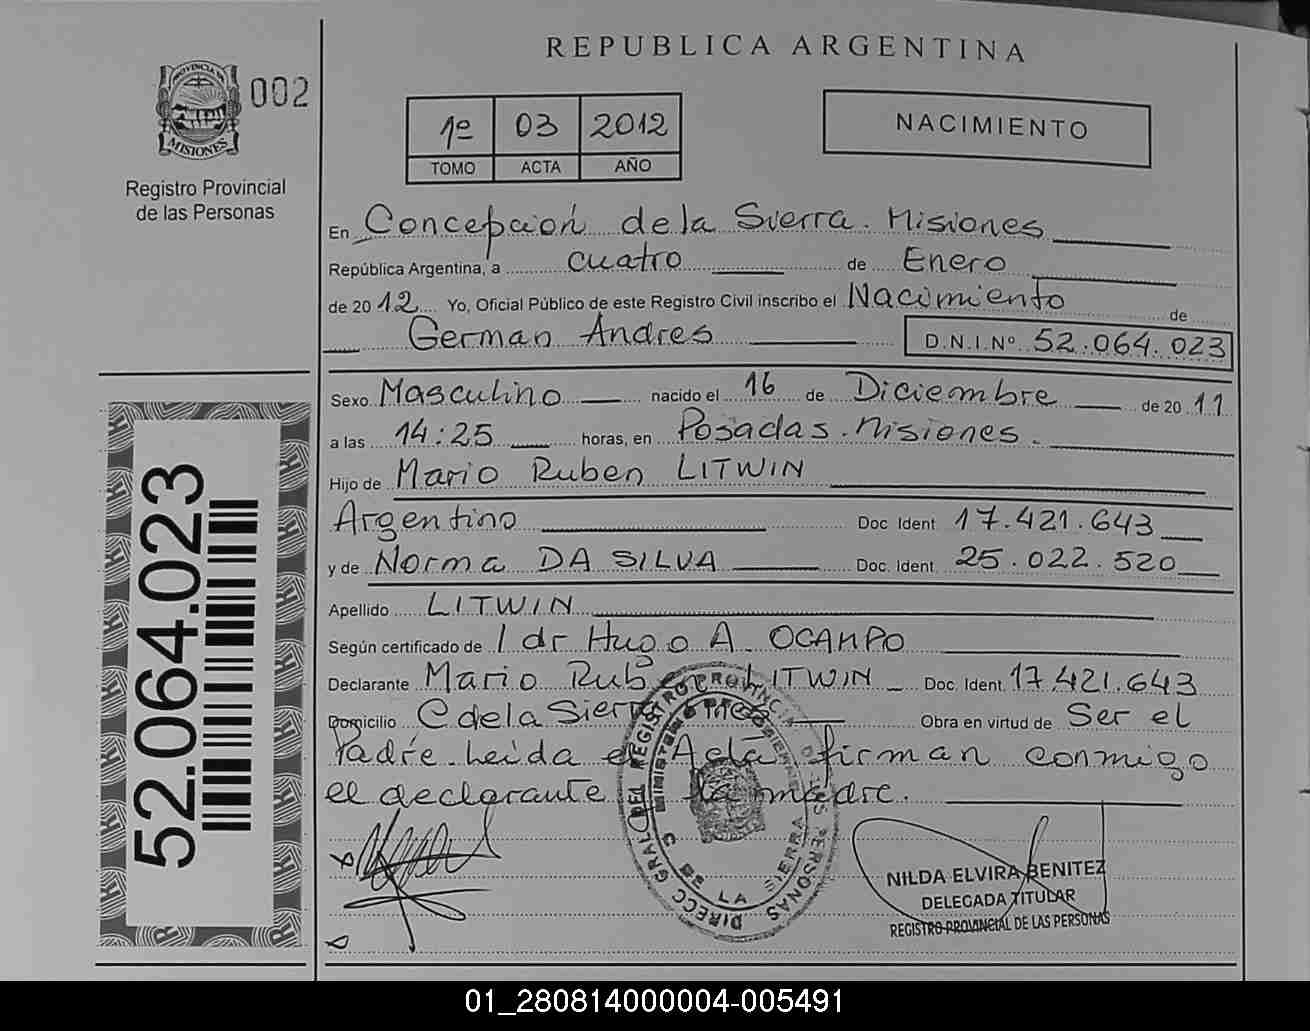 REPUBLICA ARGENTINA
PROVINCIA DE
MISIONES
002
Registro Provincial
de las Personas
1º 03 2012
TOMO ACTA AÑO
NACIMIENTO
En Concepción de la Sierra. Misiones
República Argentina, a cuatro de Enero
de 2012 Yo, Oficial Público de este Registro Civil inscribo el Nacimiento de
German Andres D.N.I.Nº 52.064.023
Sexo Masculino nacido el 16 de Diciembre de 2011
a las 14:25 horas, en Posadas. Misiones.
Hijo de Mario Ruben LITWIN
Argentino Doc Ident 17.421.643
y de Norma DA SILVA Doc. Ident. 25.022.520
Apellido LITWIN
Según certificado de / dr Hugo A. OCAMPO
Declarante Mario Ruben LITWIN Doc. Ident. 17.421.643
Domicilio C de la Sierra Obra en virtud de Ser el
Padre. Leida el Acta firman conmigo
el declarante la madre.
DIRECC GRAL DEL REGISTRO PROVINCIAL DE LAS PERSONAS
MINISTERIO DE GOBIERNO
C DE LA SIERRA
NILDA ELVIRA BENITEZ
DELEGADA TITULAR
REGISTRO PROVINCIAL DE LAS PERSONAS
52.064.023
01_280814000004-005491